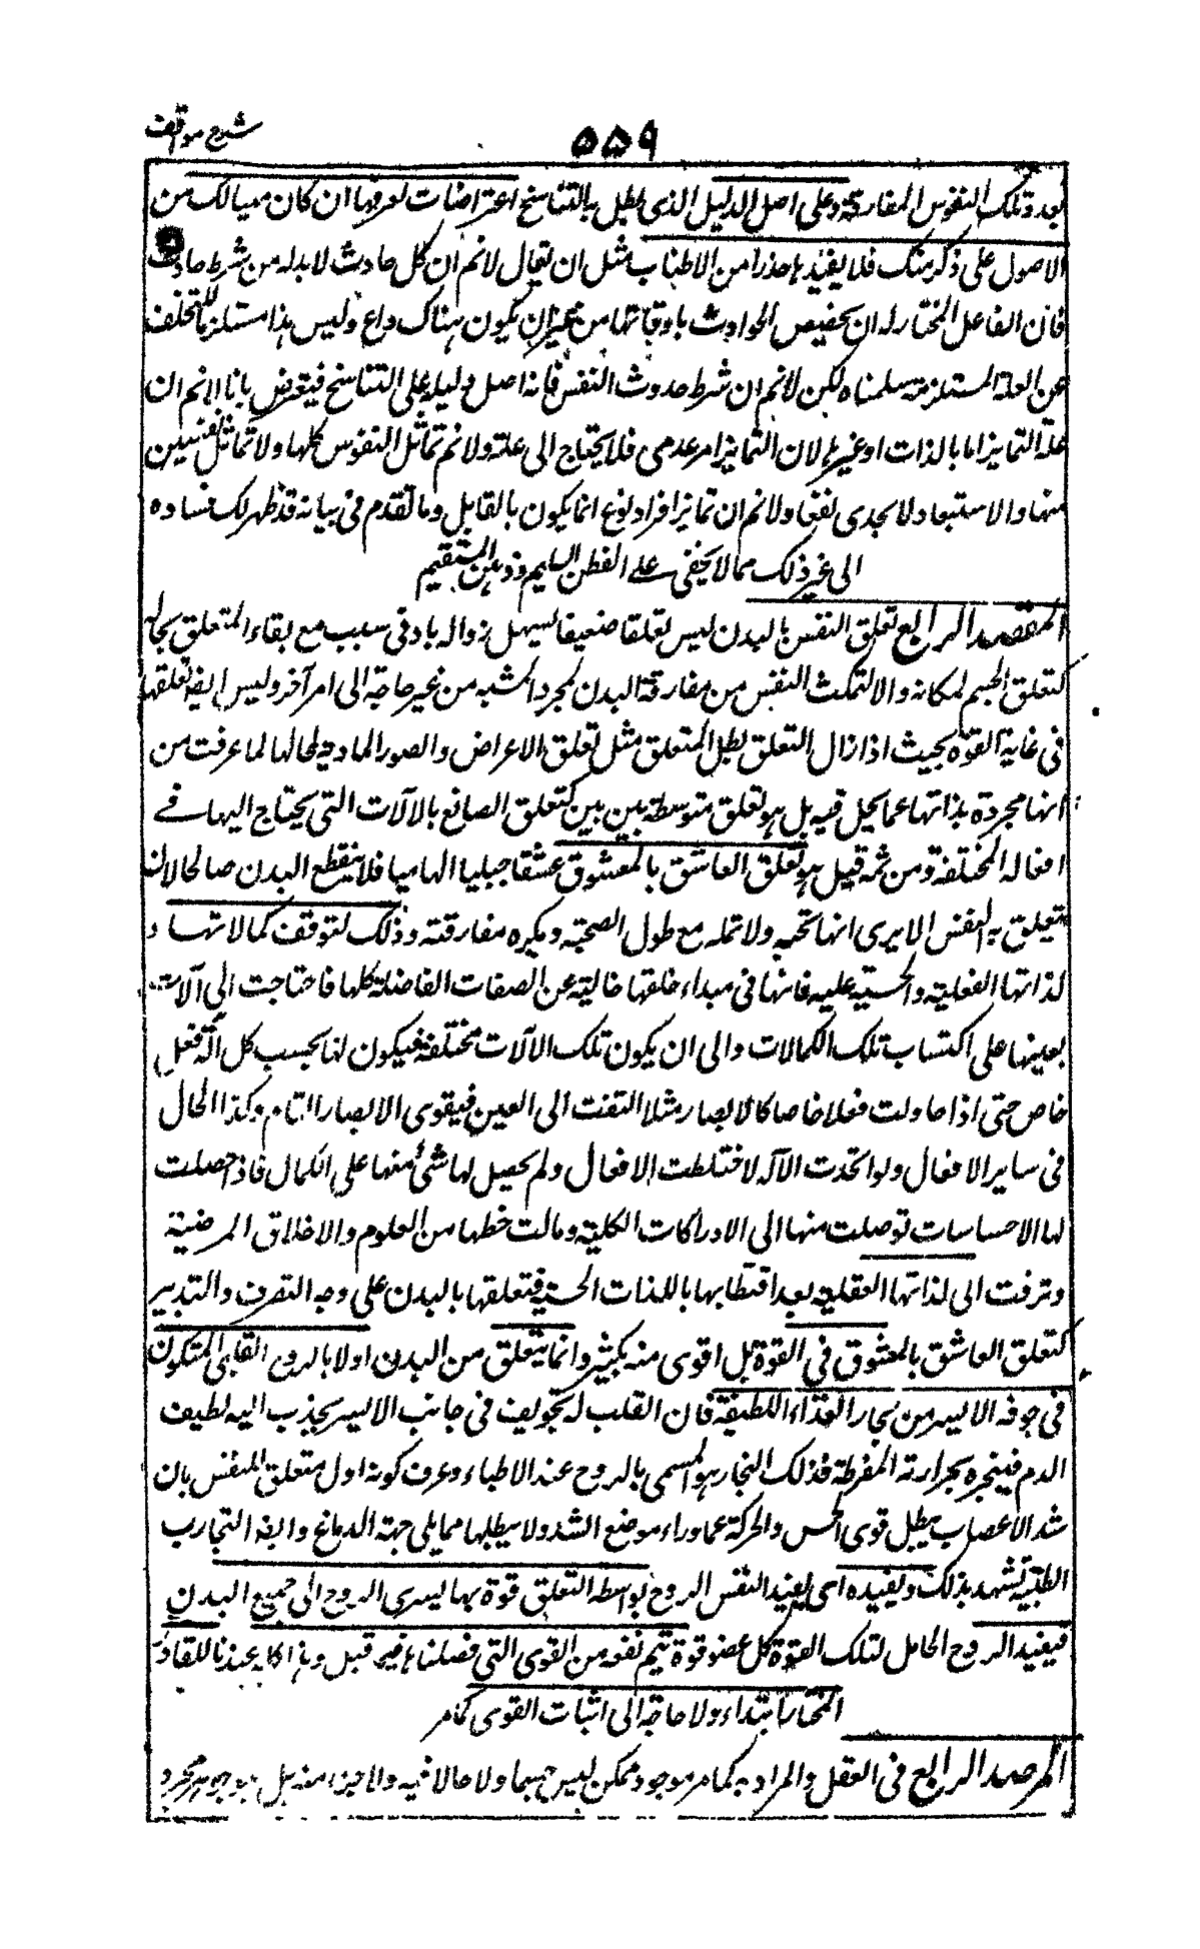 شرح مواقف
۵۵۹
بعدد تلك النفوس المفارقة وعلى اصل الدليل الذى يبطل به التناسخ اعتراضات تعرفها ان كان ممالك من
الاصول على ذكر منك فلا يفيدها حذرا من الاطناب مثل ان يقال لا نم ان كل حادث لا بد له من شرط حادث
فان الفاعل المختار له ان يخصص الحوادث باوقاتها من غير ان يكون هناك داع وليس هذا مستلزما للتخلف
عن العلة المستلزمة سلمناه لكن لا نم ان شرط حدوث النفس فانه اصل دليله على التناسخ فيتعرض بانا لا نم ان
علة التمايز اما بالذات او غيرها لان التمايز امر عدمى فلا يحتاج الى علة ولا نم تماثل النفوس كلها ولا تماثل نفسين
منها والاستبعاد لا يجدى نفعا ولا نم ان تمايز افراد نوع انما يكون بالقابل وما تقدم فى بيانه قد ظهر لك فساده
الى غير ذلك مما لا يخفى على الفطن السليم وذهن المستقيم
المقصد الرابع تعلق النفس بالبدن ليس تعلقا ضعيفا يسهل زواله بادنى سبب مع بقاء المتعلق بحاله
كتعلق الجسم بمكانه والا لتمكث النفس من مفارقة البدن بمجرد المشية من غير حاجة الى امر آخر وليس ايضا تعلقها
فى غاية القوة بحيث اذا زال التعلق بطل المتعلق مثل تعلق الاعراض والصور المادية لمحالها لما عرفت من
انها مجردة بذاتها عما يحل فيه بل هو تعلق متوسط بين بين كتعلق الصانع بالآلات التى يحتاج اليها فى
افعاله المختلفة ومن ثمه قيل هو تعلق العاشق بالمعشوق عشقا جبليا الهاميا فلا ينقطع البدن صالحا لان
يتعلق به النفس الا يرى انها تحبه ولا تمله مع طول الصحبة ويكره مفارقته وذلك لتوقف كمالاتها و
لذاتها الفعلية والحسية عليه فانها فى مبداء خلقها خالية عن الصفات الفاضلة كلها فاحتاجت الى آلات
يعينها على اكتساب تلك الكمالات والى ان يكون تلك الآلات مختلفة فيكون لها بحسب كل آلة فعل
خاص حتى اذا حاولت فعلا خاصا كالابصار مثلا التفتت الى العين فيقوى الابصار التام وكذا الحال
فى سائر الافعال ولو اتحدت الآلة لاختلطت الافعال ولم يحصل لها شئ منها على الكمال فاذا حصلت
لها الاحساسات توصلت منها الى الادراكات الكلية ومالت حظها من العلوم والاخلاق المرضية
وترقت الى لذاتها العقلية بعد اقتطابها باللذات الحسية فتعلقها بالبدن على وجه التصرف والتدبير
كتعلق العاشق بالمعشوق فى القوة بل اقوى منه بكثير وانما يتعلق من البدن اولا بالروح القلبى المتكون
فى جوفه الايسر من بخار الغذاء اللطيفة فان القلب له تجويف فى جانب الايسر يجذب اليه لطيف
الدم فيبخره بحرارته المفرطة فذلك البخار هو المسمى بالروح عند الاطباء وعرف كونه اول متعلق للنفس بان
شد الاعصاب يبطل قوى الحس والحركة عما وراء موضع الشد ولا يبطلها مما يلى جهة الدماغ وايضا التجارب
الطبية تشهد بذلك ويفيده اى يفيد النفس الروح بواسطة التعلق قوة بها يسرى الروح الى جميع البدن
فيفيد الروح الحامل لتلك القوة كل عضو قوة يتم نفعه من القوى التى فصلناها فيما قبل وهذا كله عندنا للقادر
المختار ابتداء ولا حاجة الى اثبات القوى كما مر
المرصد الرابع فى العقل والمراد به كما مر موجود ممكن ليس جسما ولا حالا فيه ولا جزءا منه بل هو جوهر مجرد